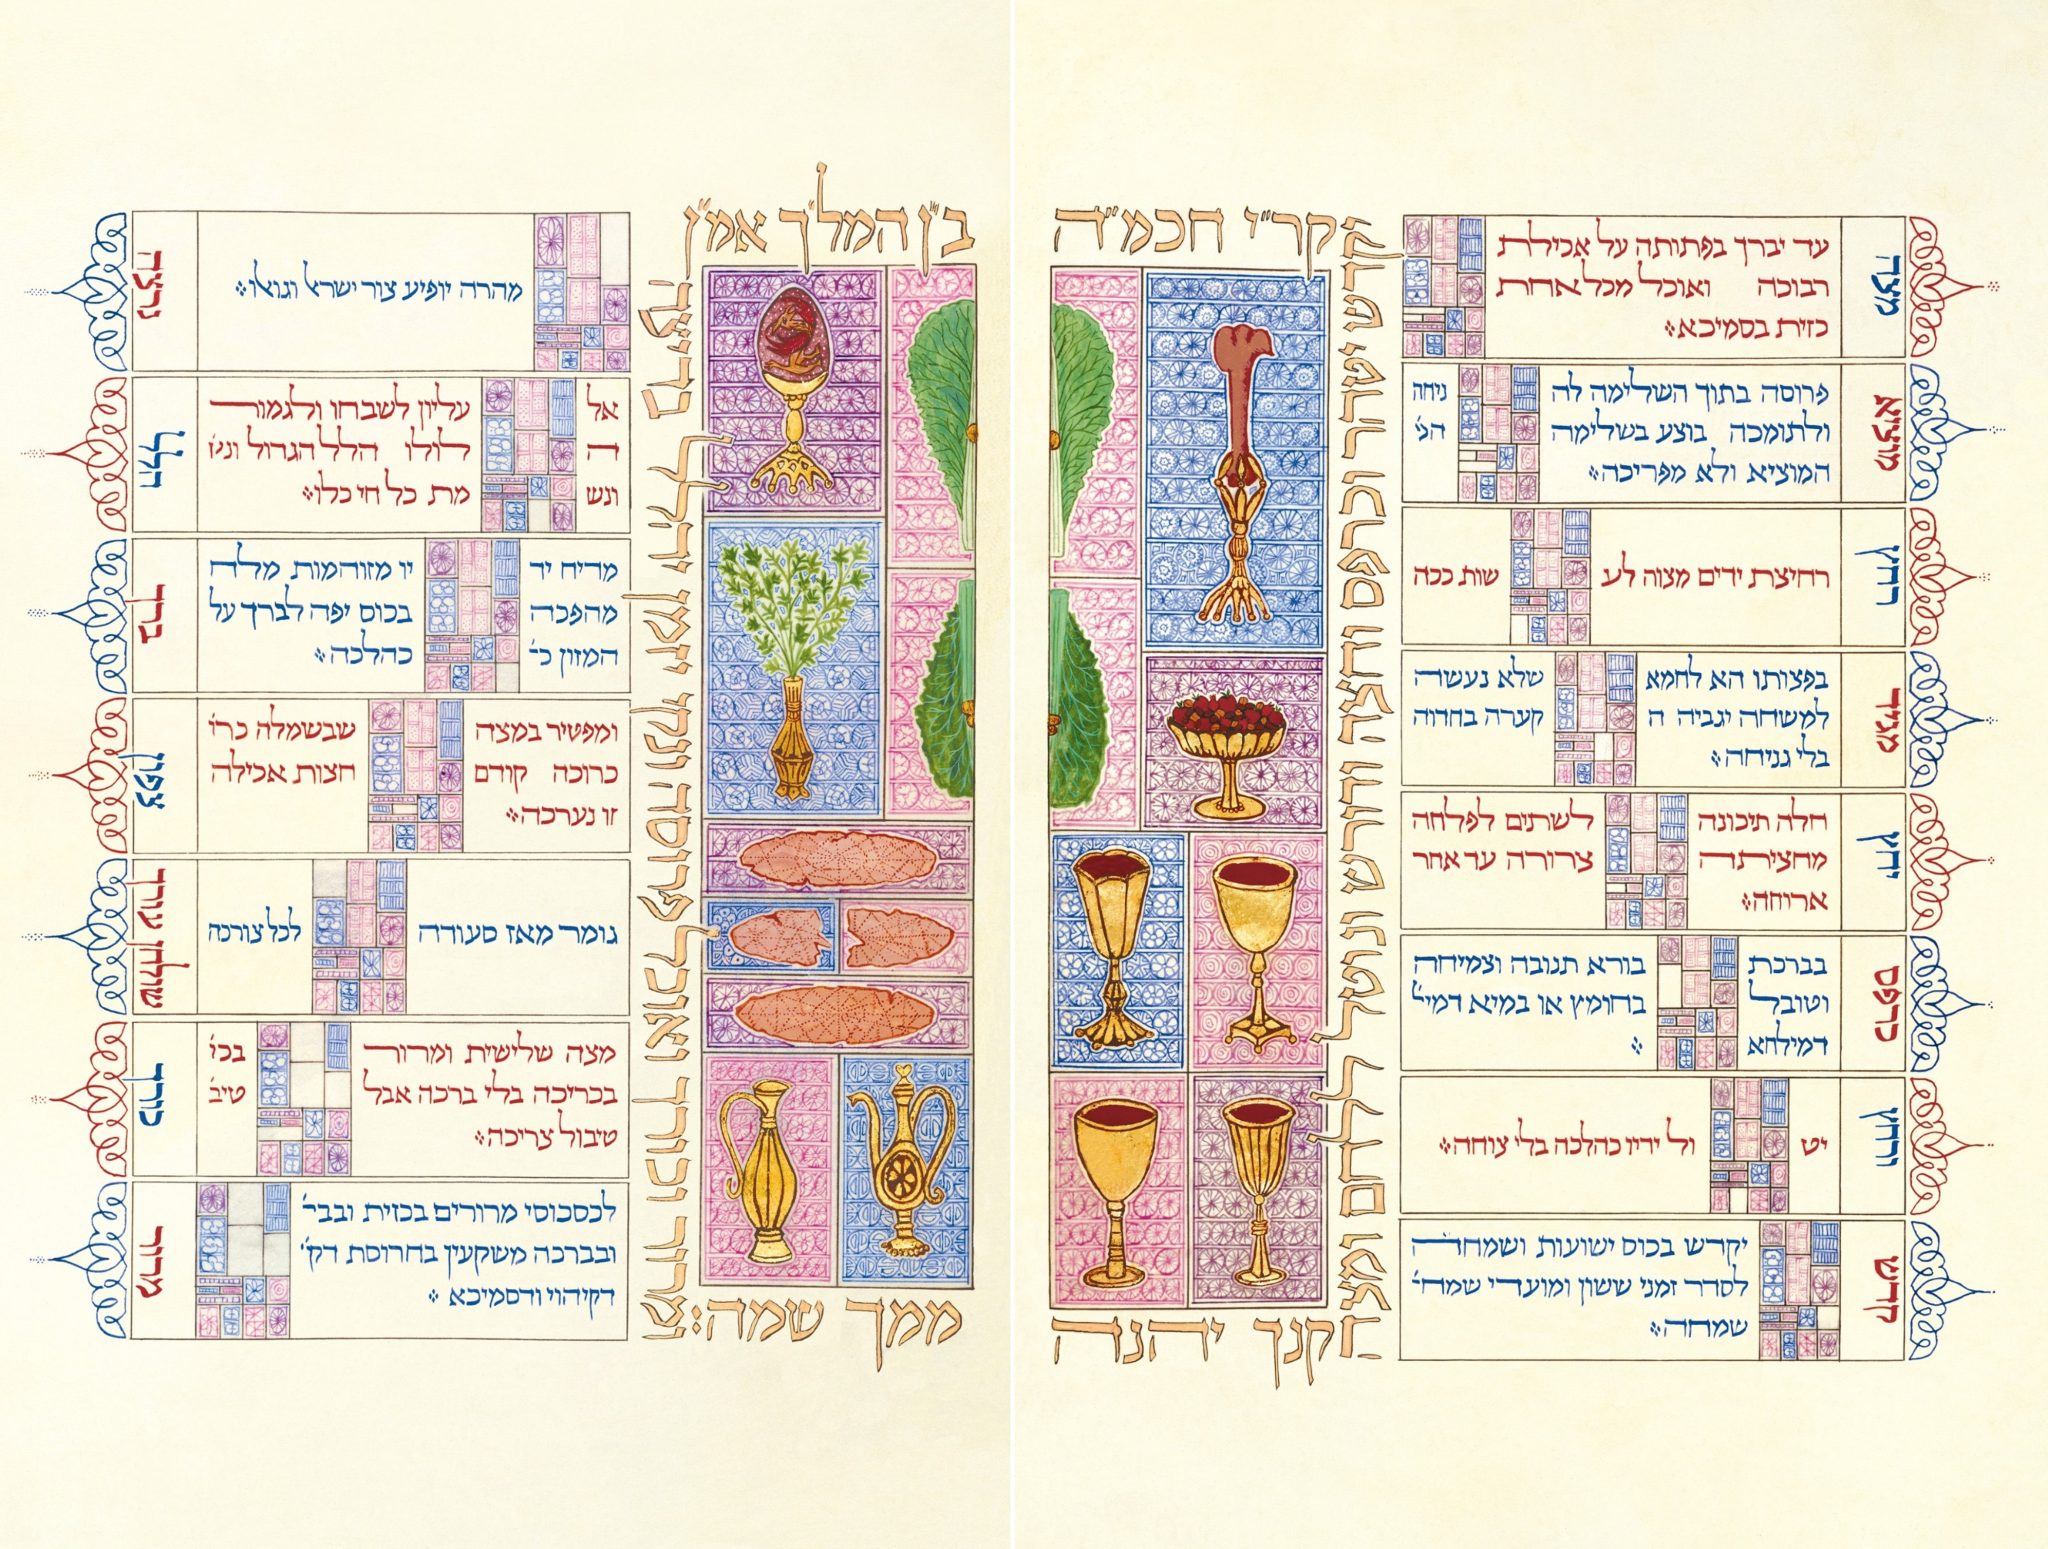 מצה
עד יברך בפתותה על אכילת
רבוכה ואוכל מכל אחת
כזית בסמיכא
מוציא
פרוסה בתוך השלימה לה ניחה
ולתומכה בוצע בשלימה המ׳
המוציא ולא מפריכה
רחץ
רחיצת ידים מצוה לע שות ככה
מגיד
בפצותו הא לחמא שלא נעשה
למשחה יגביה ה קערה בחדוה
בלי גניחה
יחץ
חלה תיכונה לשתים לפלחה
מחציתה צרורה עד אחר
ארוחה
כרפס
בברכת בורא תנובה וצמיחה
וטובל בחומץ או במיא דמיל׳
דמילחא
ורחץ
יט ול ידיו כהלכה בלי צוחה
קדש
יקדש בכוס ישועות ושמחה
לסדר זמני ששון ומועדי שמח׳
שמחה
יקר״י חכמ״ה
יקדש יטהר וכרפס וחצה ודורש ונוטל ללחם ומצה
קנך יהנה
ב״ן המל״ך אמ״ן
ומרור וכורך ואוכל פרוסה ונקי יזמן יהלל בריצה
ממך שמה:
נרצה
מהרה יופיע צור ישראל וגואלו
הלל
אל עליון לשבחו ולגמור
ה לולו הלל הגדול ונש׳
ונש מת כל חי כלו
ברך
מדיח יד יו מזוהמות מלח
מהפכה בכוס יפה לברך על
המזון כ׳ כהלכה
צפון
ומפטיר במצה שבשמלה כרו׳
כרוכה קודם חצות אכילה
זו נערכה
שולחן עורך
גומר מאז סעודה לכל צורכה
כורך
מצה שלישית ומרור בכ׳
בכריכה בלי ברכה אבל טיב׳
טיבול צריכה
מרור
לכסכוסי מרורים בכזית ובבר׳
ובברכה משקעין בחרוסת דק׳
דקיהוי ודסמיכא